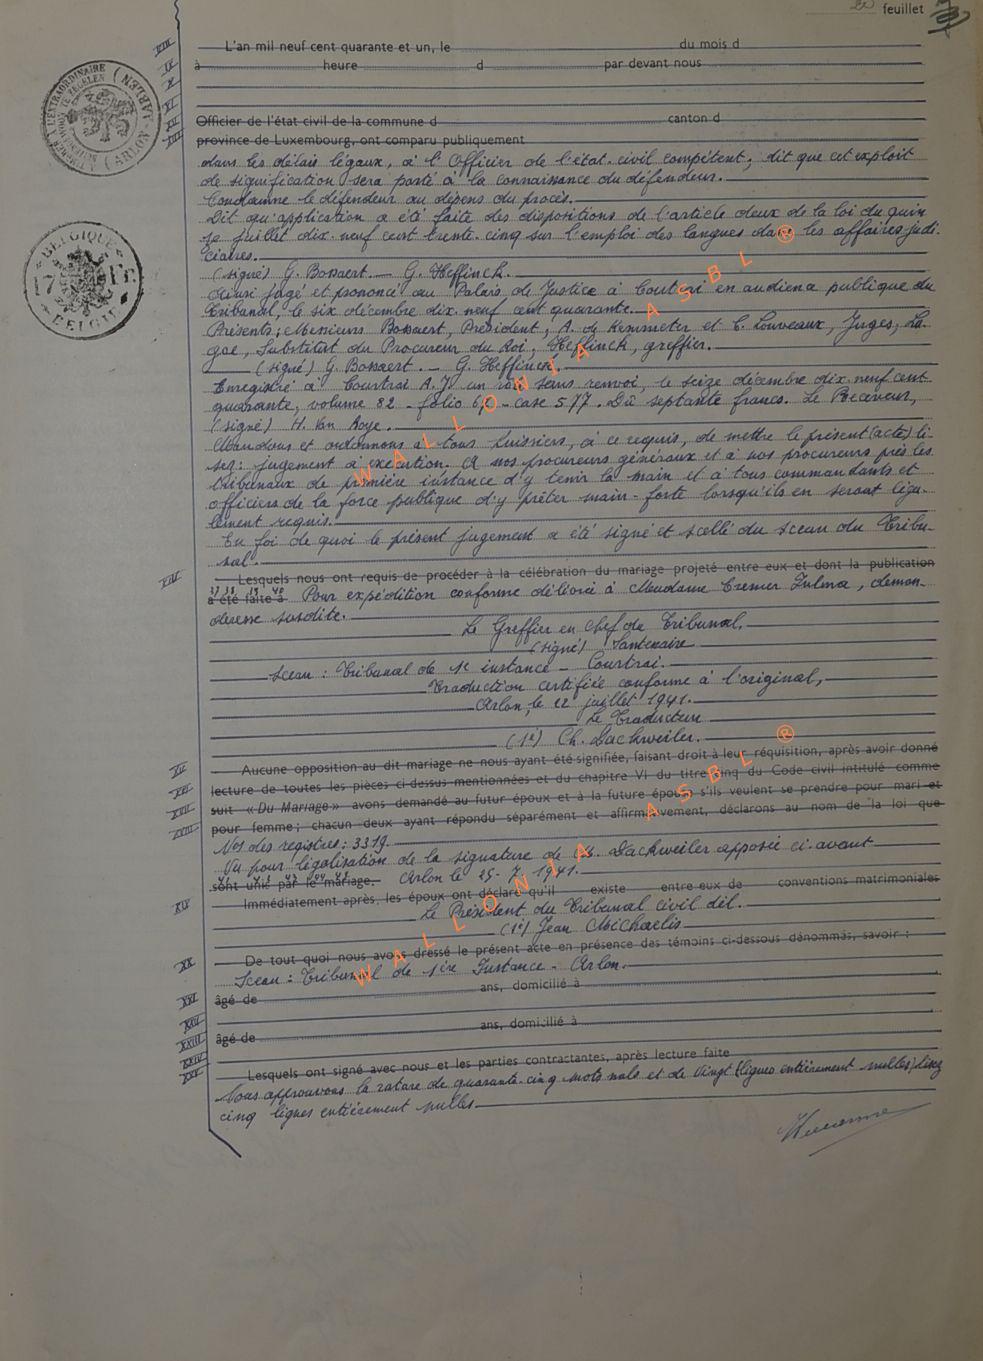 2e feuillet
L'an mil neuf cent quarante et un, le du mois d
à heure d par devant nous
Officier de l'état civil de la commune d canton d
province de Luxembourg, ont comparu publiquement
dans les délais légaux, à l'Officier de l'état civil compétent; dit que cet exploit
de signification sera porté à la connaissance du défendeur.
Condamne le défendeur au dépens du procès.
Dit qu'application a été faite des dispositions de l'article deux de la loi du quin
ze juillet dix-neuf cent trente-cinq sur l'emploi des langues dans les affaires judi-
ciaires.
(signé) G. Bossaert. — G. Heffinck.
Ainsi jugé et prononcé au Palais de Justice à Courtrai en audience publique du
Tribunal, le six décembre dix-neuf cent quarante.
Présents: Messieurs Bossaert, Président, A. de Kemmeter et C. Louveaux, Juges, La-
gae, Substitut du Procureur du Roi, Heffinck, greffier.
(signé) G. Bossaert. — G. Heffinck.
Enregistré à Courtrai A.J. un rôle sans renvoi, le seize décembre dix-neuf cent
quarante, volume 82 - folio - case 577. Dû septante francs. Le Receveur,
(signé) H. Van Aoye.
Mandons et ordonnons à tous huissiers, à ce requis, de mettre le présent (acte) li-
sez: jugement à exécution. A nos procureurs généraux et à nos procureurs près les
tribunaux de première instance d'y tenir la main et à tous commandants et
officiers de la force publique d'y prêter main-forte lorsqu'ils en seront léga-
lement requis.
En foi de quoi le présent jugement a été signé et scellé du sceau du Tribu-
nal.
Lesquels nous ont requis de procéder à la célébration du mariage projeté entre eux et dont la publication
a été faite à Pour expédition conforme délivrée à Madame Cremer Zulma, deman-
deresse susdite.
Le Greffier en chef du Tribunal,
(signé) Santenaire
Sceau: Tribunal de 1e instance - Courtrai.
Traduction certifiée conforme à l'original,
Arlon, le 22 juillet 1941.
Le Traducteur
(sé) Ch. Dackweiler.
Aucune opposition au dit mariage ne nous ayant été signifiée, faisant droit à leur réquisition, après avoir donné
lecture de toutes les pièces ci-dessus mentionnées et du chapitre VI du titre cinq du Code civil intitulé comme
suit « Du Mariage » avons demandé au futur époux et à la future épouse s'ils veulent se prendre pour mari et
pour femme; chacun deux ayant répondu séparément et affirmativement, déclarons au nom de la loi que
Nos des registres: 3319.
Vu pour légalisation de la signature de Ch. Dackweiler apposée ci-avant
sont unis par le mariage. Arlon le 25-7-1941.
Immédiatement après, les époux ont déclaré qu'il existe entre eux de conventions matrimoniales
Le Président du Tribunal civil dél.
(sé) Jean Michaelis
De tout quoi nous avons dressé le présent acte en présence des témoins ci-dessous dénommés, savoir:
Sceau: Tribunal de 1ère Instance - Arlon.
âgé de ans, domicilié à
âgé de ans, domicilié à
Lesquels ont signé avec nous et les parties contractantes, après lecture faite
Nous approuvons la rature de quarante-cinq mots nuls et de vingt (lignes entièrement nulles) lisez
cinq lignes entièrement nulles
BELGIQUE
BELGIË
ARLON
WALLONIA ASBL ®
WALLONIA ASBL ®